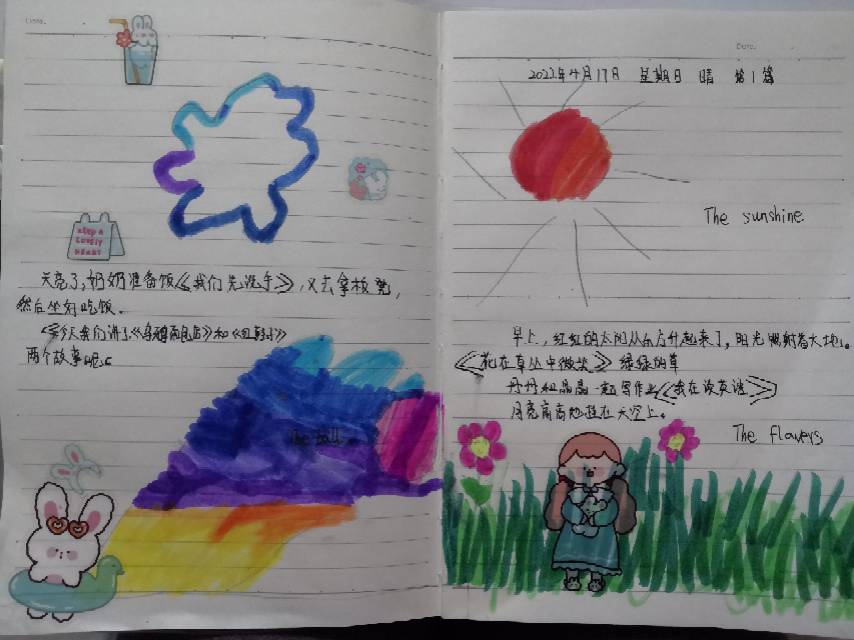 Date.
KEEP A
LOVELY
HEART
天亮了,奶奶准备饭《我们先洗手》,又去拿板凳,
然后坐好吃饭。
今天我们讲了《乌鸦和
两个故事呢。
The ball.
Date.
2022年4月17日 星期日 晴 第1篇
The sunshine.
早上,红红的太阳从东方升起来了,阳光照射着大地。
《花在草丛中微笑》绿绿的草
丹丹和晶晶一起写作业《我在读英语》
月亮高高地挂在天空上。
The flowers